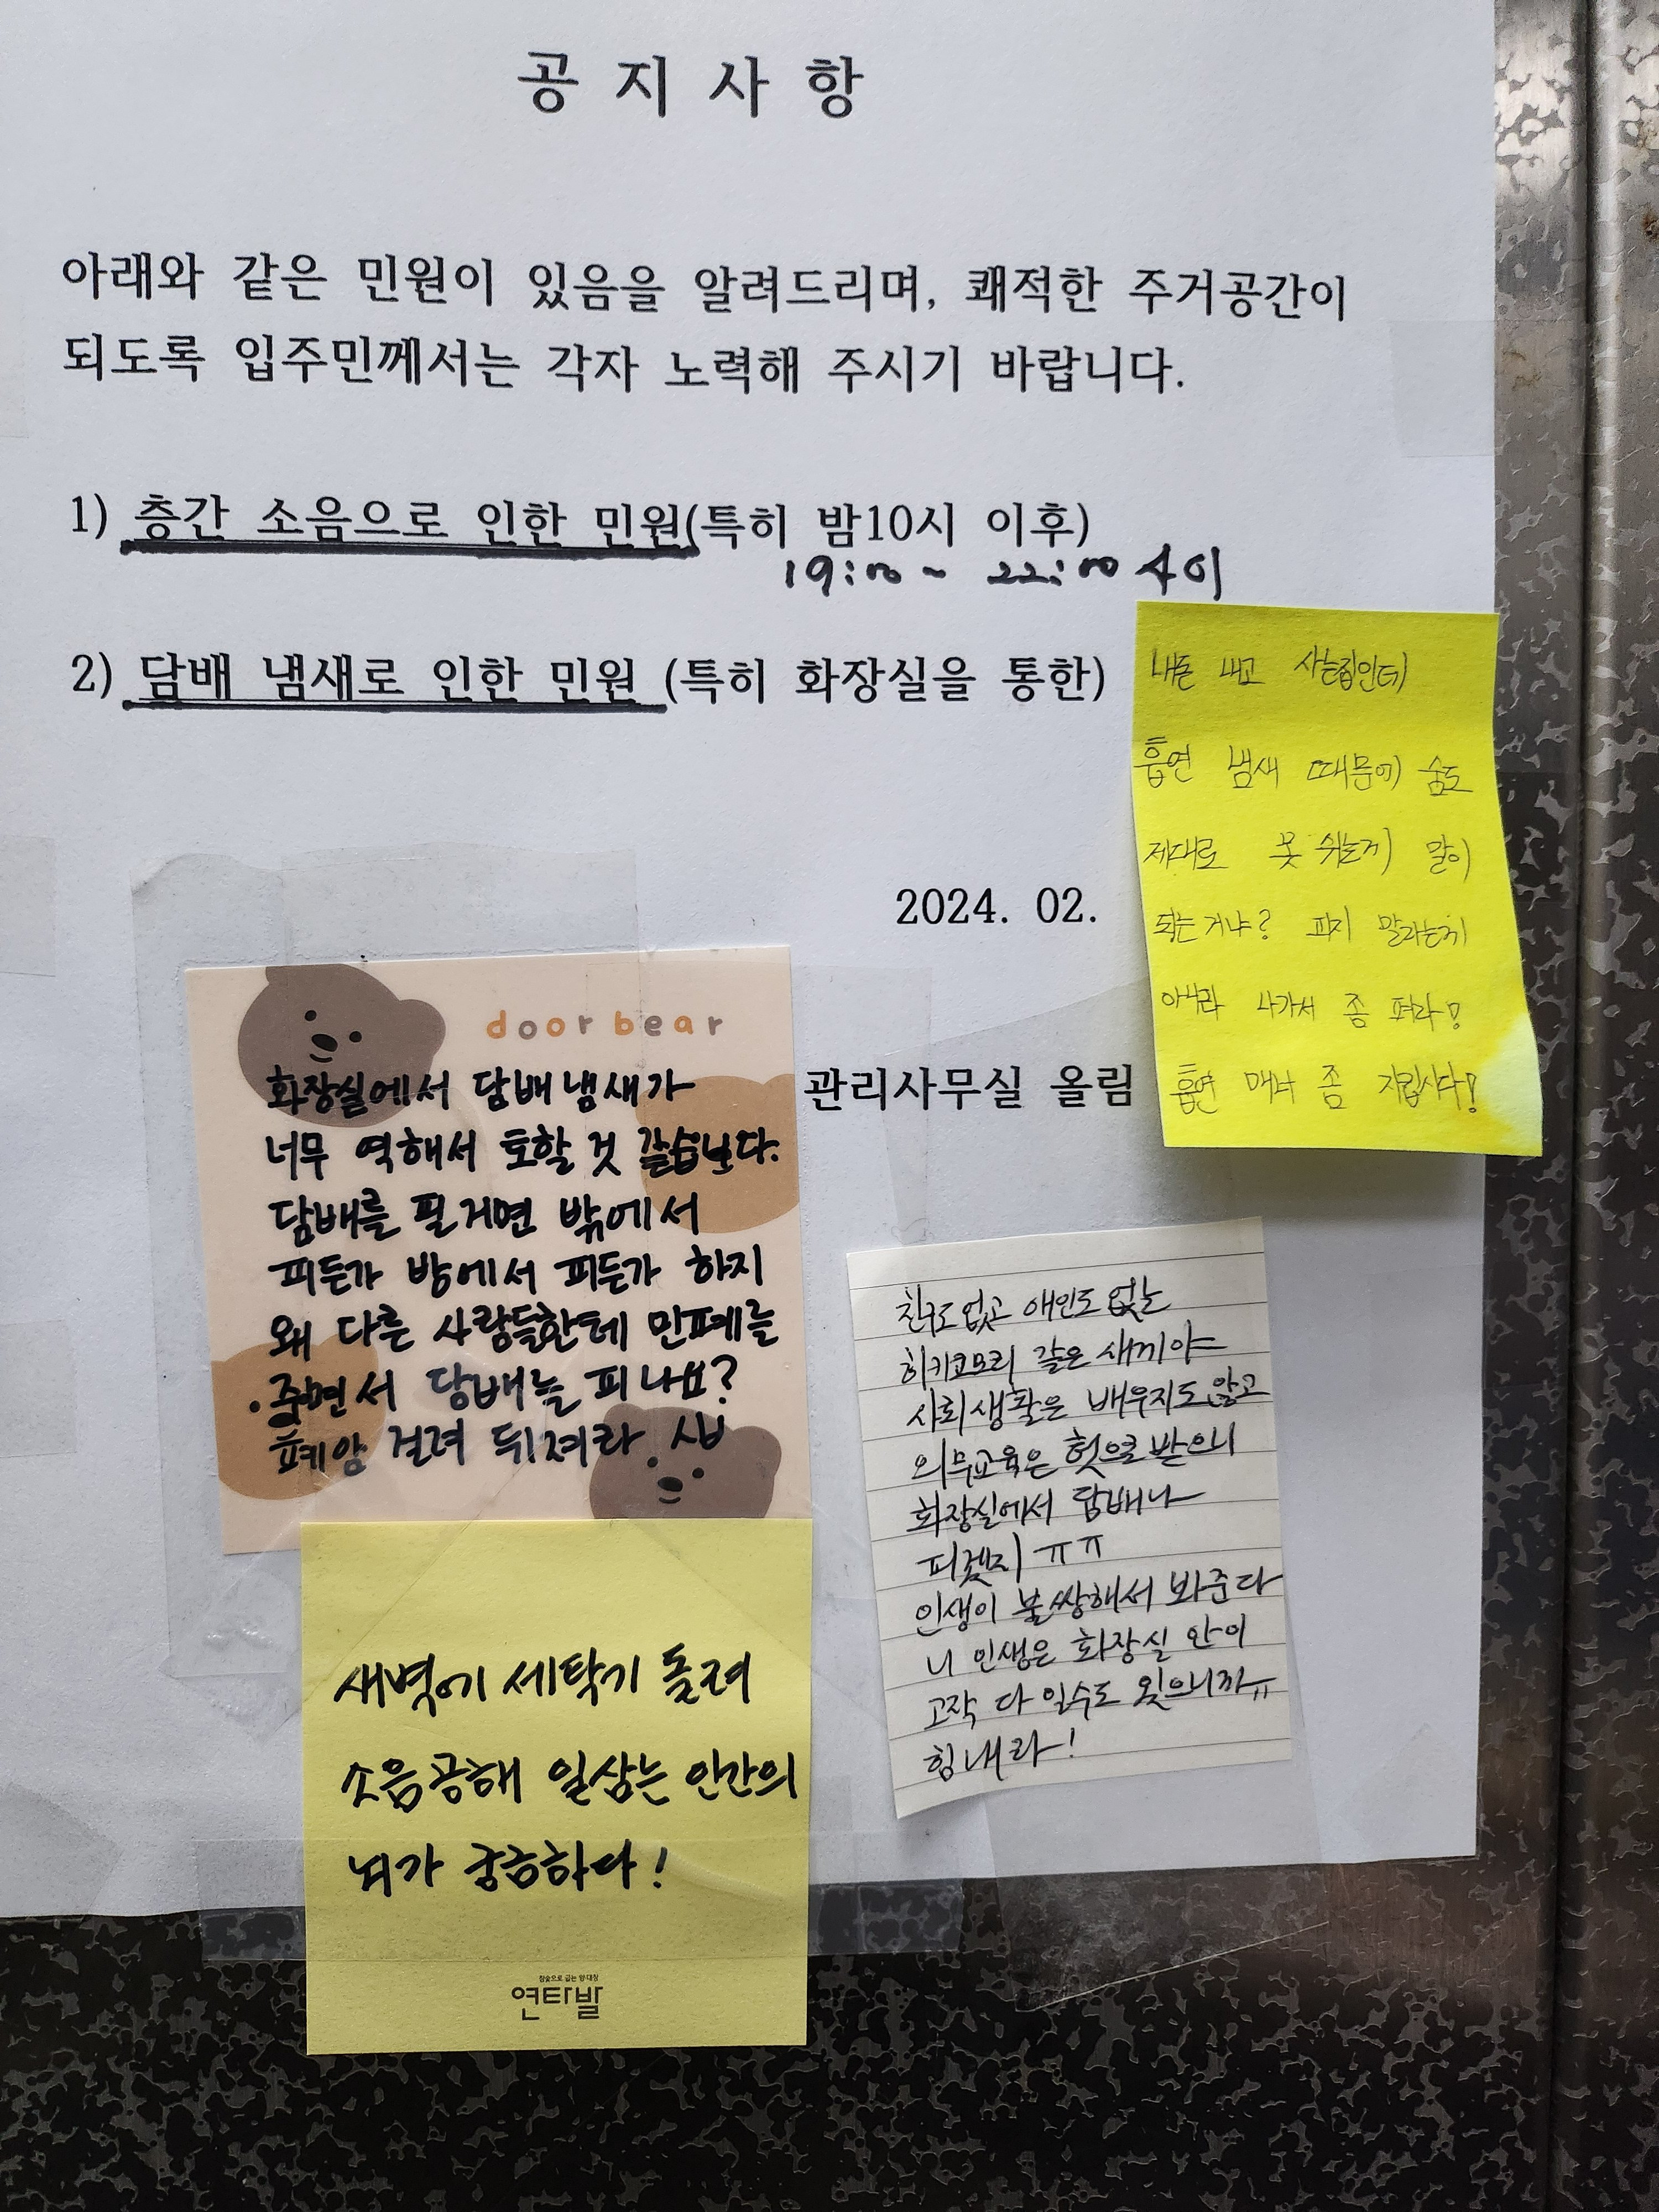 공지사항
아래와 같은 민원이 있음을 알려드리며, 쾌적한 주거공간이
되도록 입주민께서는 각자 노력해 주시기 바랍니다.
1) 층간 소음으로 인한 민원(특히 밤10시 이후)
19:00 ~ 22:00 사이
2) 담배 냄새로 인한 민원 (특히 화장실을 통한)
2024. 02.
관리사무실 올림
내돈 내고 사는집인데
흡연 냄새 때문에 숨도
제대로 못 쉬는게 말이
되는거냐? 피지 말라는게
아니라 나가서 좀 펴라!
흡연 매너 좀 지킵시다!
door bear
화장실에서 담배냄새가
너무 역해서 토할 것 같습니다.
담배를 필거면 밖에서
피든가 방에서 피든가 하지
왜 다른 사람들한테 민폐를
주면서 담배를 피나요?
폐암 걸려 뒤져라
친구도없고 애인도 없는
히키코모리 같은 새끼야
사회생활은 배우지도 않고
의무교육은 헛으로 받으니
화장실에서 담배나
피겠지 ㅠㅠ
인생이 불쌍해서 봐준다
니 인생은 화장실 안이
고작 다 일수도 있으니까ㅠ
힘내라!
새벽에 세탁기 돌려
소음공해 일삼는 인간의
뇌가 궁금하다!
참숯으로 굽는 양·대창
연타발